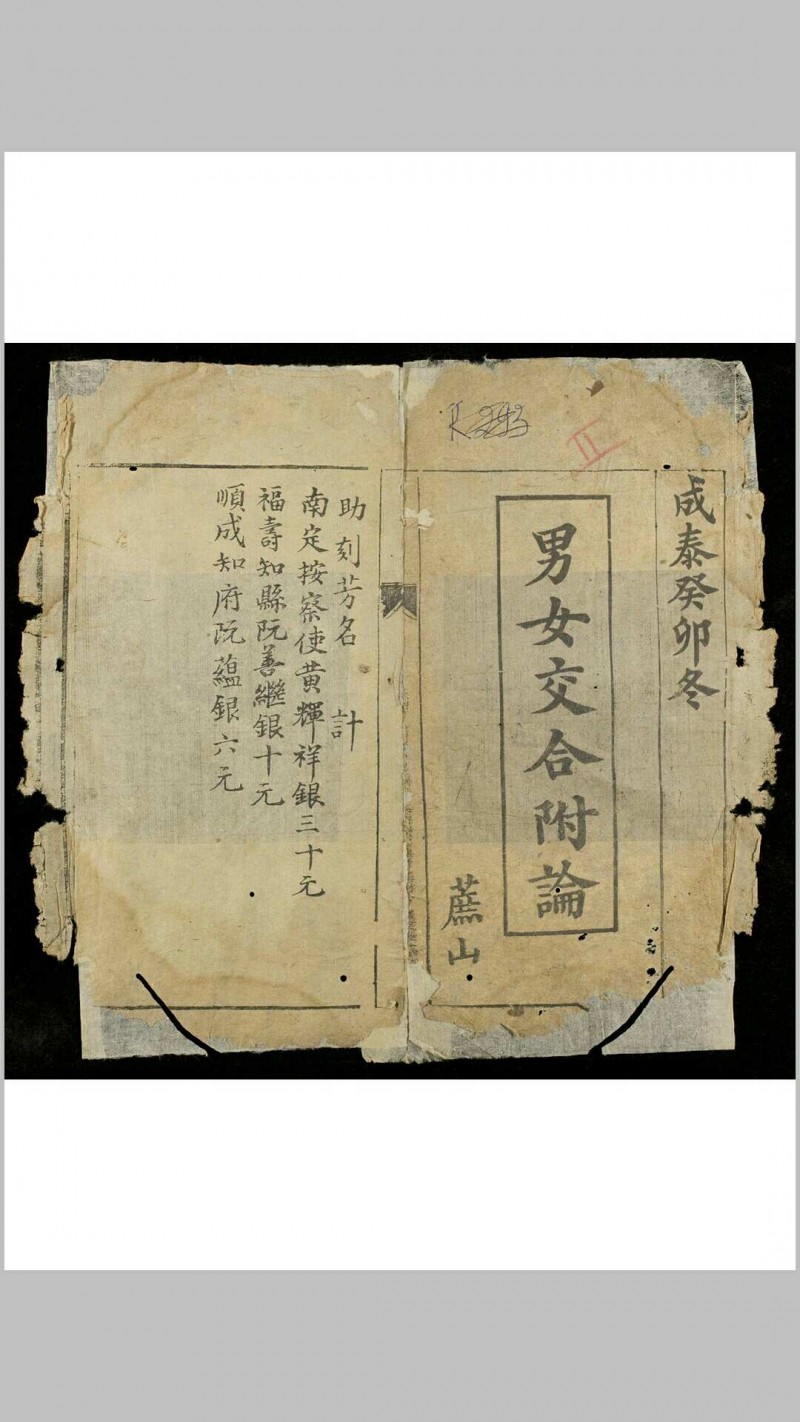 成泰癸卯冬
男女交合附論
蔗山
助刻芳名 計
南定按察使黄輝祥銀三十元
福壽知縣阮善繼銀十元
順成知府阮蘊銀六元